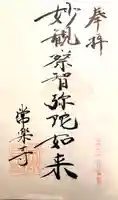 奉拝
妙観察智弥陀如来
常楽寺